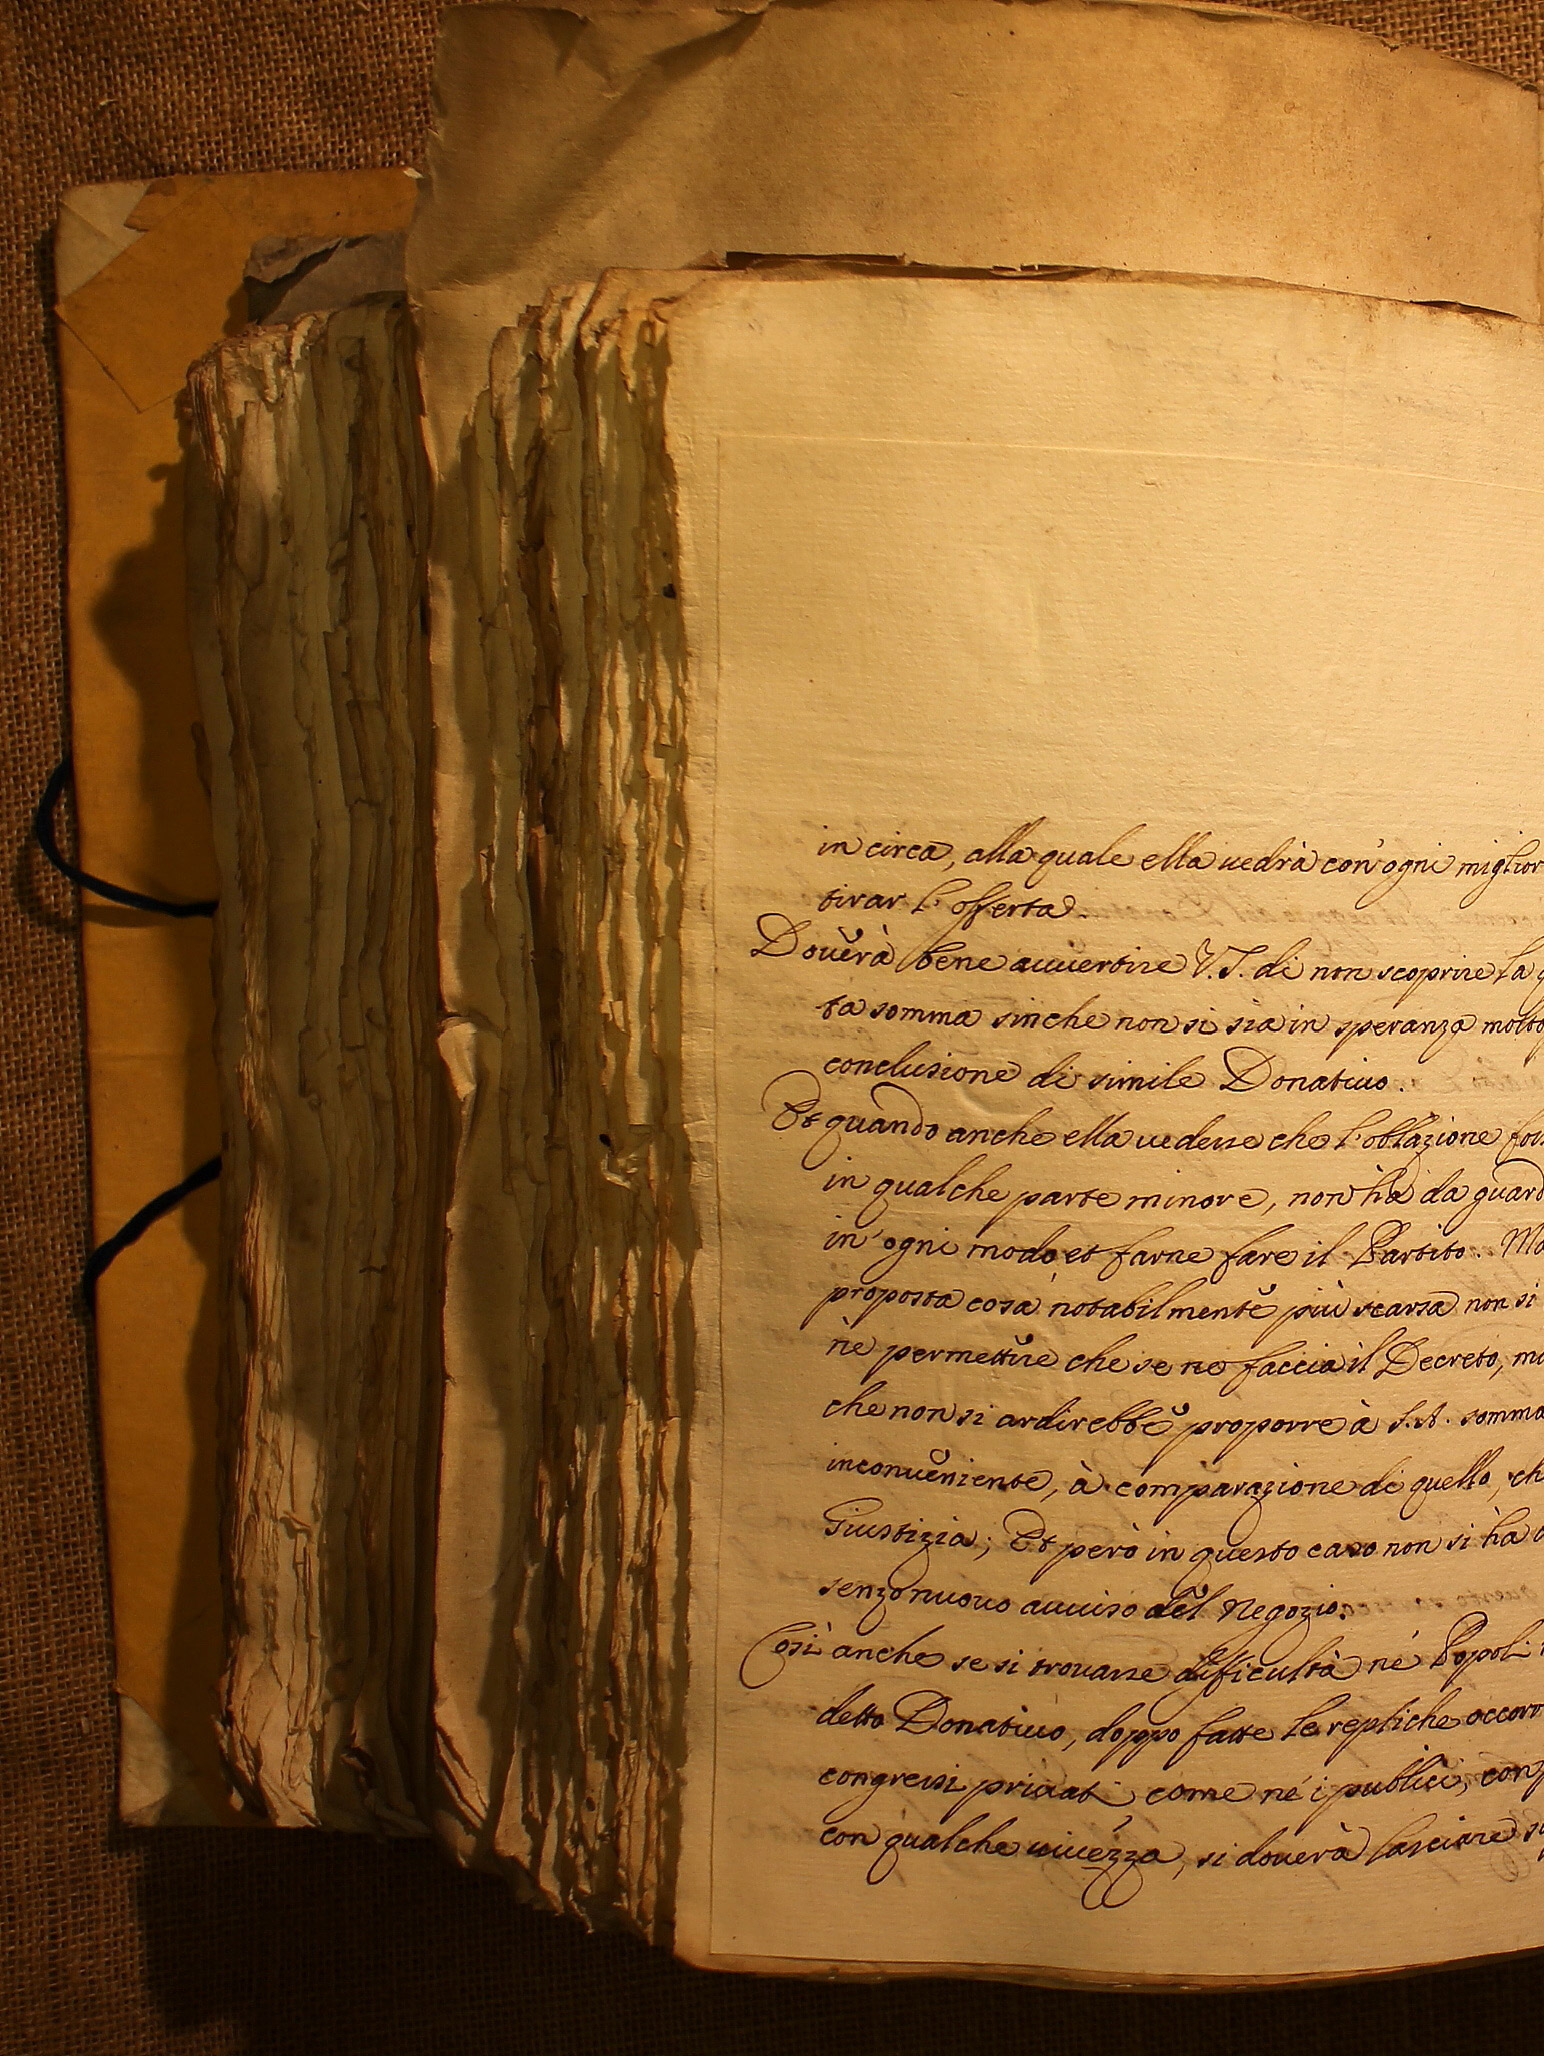 in circa, alla quale ella uedrà con ogni miglior
tirar l'offerta.
Douerà bene auuertire V.S. di non scoprire la
ta somma sinche non si sia in speranza molto
conclusione di simile Donatiuo.
Et quando anche ella uedesse che l'oblazione fos
in qualche parte minore, non hà da guard
in ogni modo et farne fare il Partito. Ma
proposta cosa notabilmente più scarsa non si
nè permettere che se ne faccia il Decreto, ma
che non si ardirebbe proporre à S.A. somma
inconueniente, à comparazione di quello, ch
Giustizia; Et però in questo caso non si hà
senza nuouo auuiso del Negozio.
Così anche se si trouasse difficultà nè Popoli
detto Donatiuo, doppo fatte le repliche occorr
congressi priuati, come nè i publici, con
con qualche uiuezza, si douerà lasciare